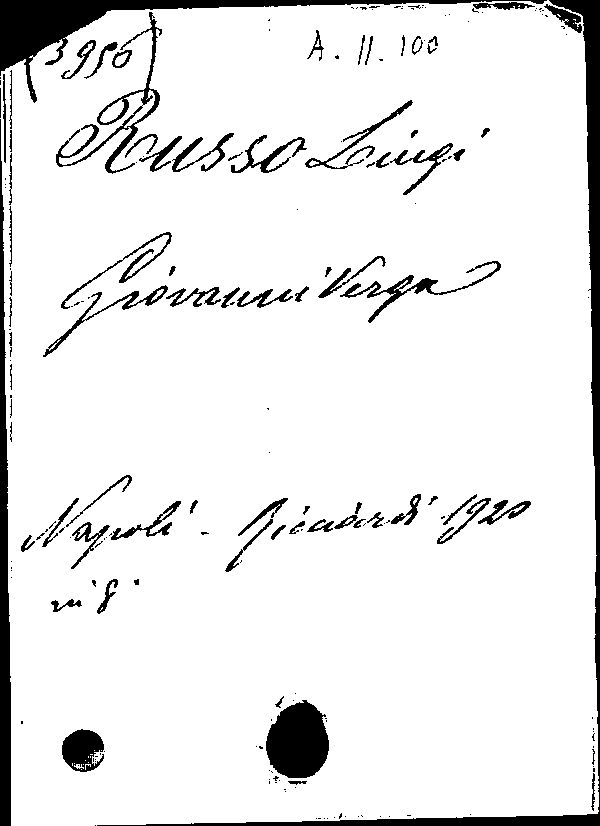 (3956)
A. II. 100
Russo Luigi
Giovanni Verga
Napoli - Ricciardi 1920
in 8°